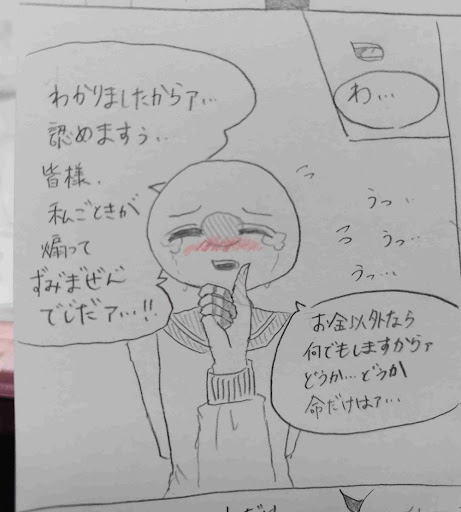 わ…
わかりましたからァ…
認めますぅ…
皆様、
私ごときが
煽って
ずみまぜん
でじだァ…!!
うっ…
うっ…
うっ…
お金以外なら
何でもしますからァ
どうか…どうか
命だけはァ…